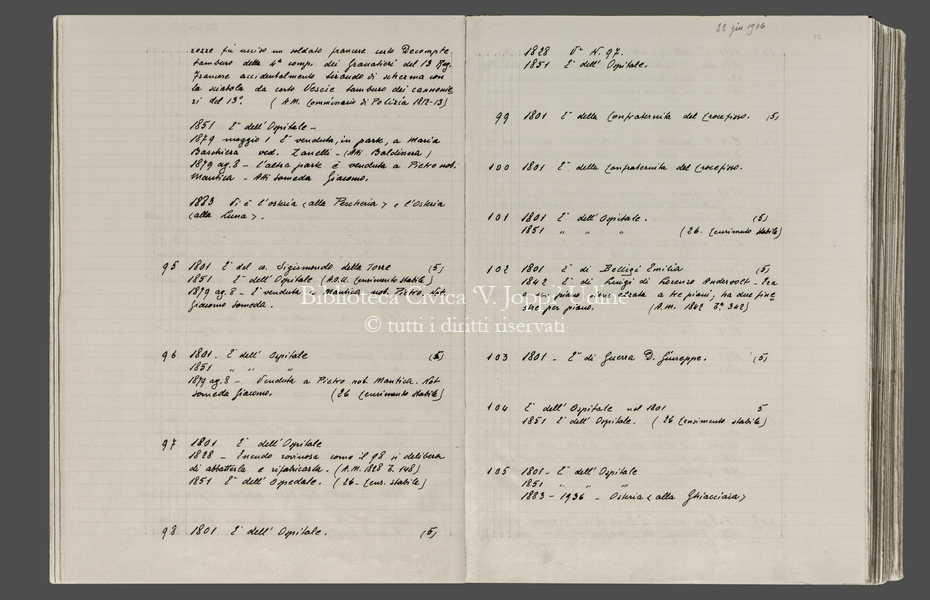 rozze fu ucciso un soldato francese certo Decompte
tamburo della 4ª comp. dei Granatieri del 13 Reg.
Francese accidentalmente tirando di scherma con
la sciabola da certo Vescie tamburo dei cannonie
ri del 13º. (A.M. Commissario di Polizia 1812-13)
1851 E' dell'Ospitale -
1879 maggio 1 E' venduta, in parte, a Maria
Barchiera ved. Zanelli - (Atti Baldissera)
1879 ag. 8 - l'altra parte è venduta a Pietro nob.
Mantica - Atti Someda Giacomo.
1883 Vi è l'osteria <alla Pescheria> e l'Osteria
<alla Luna>.
95 1801 E' del co. Sigismondo della Torre (5)
1851 E' dell'Ospitale (A.O.U. Censimento stabile)
1879 ag. 8 - E' venduta a Mantica nob. Pietro. Not.
Giacomo Someda.
96 1801 - E' dell'Ospitale (5)
1851 " " "
1879 ag. 8 - Venduta a Pietro nob. Mantica. Not
Someda Giacomo. (26 Censimento stabile)
97 1801 E' dell'Ospitale
1828 - Essendo rovinosa come il 98 si delibera
di abbatterla e rifabricarla. (A.M. 1828 T. 148)
1851 E' dell'Ospedale. (26 - Cens. stabile)
98 1801 E' dell'Ospitale. (5)
22 giu 1986
1828 Vº N. 97.
1851 E' dell'Ospitale.
99 1801 E' della Confraternita del Crocefisso. (5)
100 1801 E' della Confraternita del Crocefisso.
101 1801 E' dell'Ospitale. (5)
1851 " " " (26. Censimento stabile)
102 1801 è di Belligi Emilia (5)
1842 E' di Luigi di Lorenzo Andervolt - Era
a tre piani, ha due fine
stre per piano. (A.M. 1842 Tº 342)
103 1801 - E' di Guerra D. Giuseppe. (5)
104 E' dell'Ospitale nel 1801 5
1851 E' dell'Ospitale. (26 Censimento stabile)
105 1801 - E' dell'Ospitale
1851 " " "
1883 - 1936 - Osteria <alla Ghiacciaia>
Biblioteca Civica 'V. Joppi' Udine
© tutti i diritti riservati